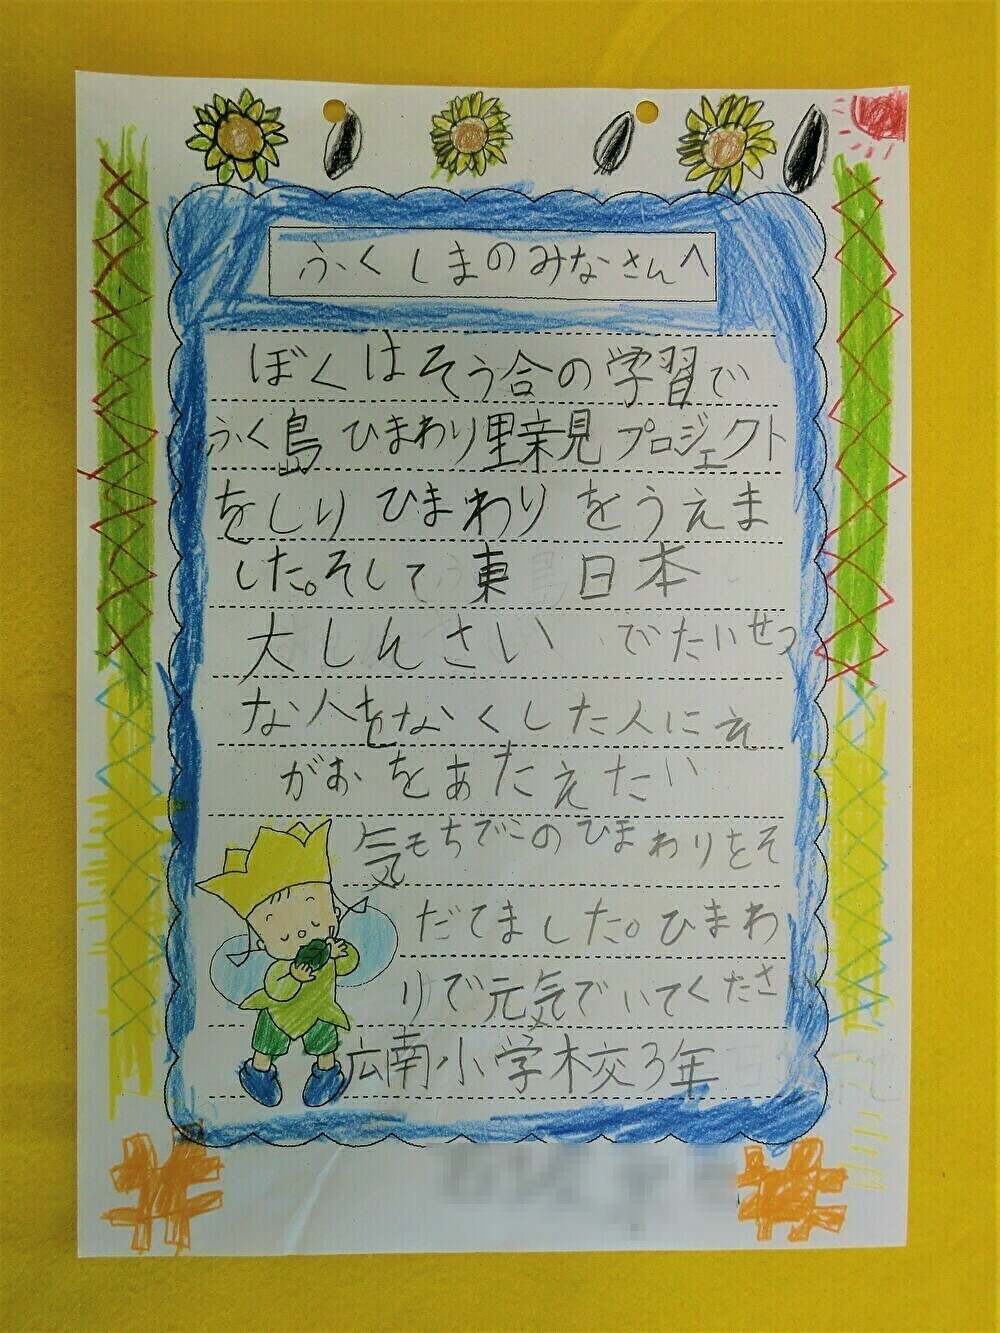 ふくしまのみなさんへ
ぼくはそう合の学習で
ふく島ひまわり里親プロジェクト
をしりひまわりをうえま
した。そして東日本
大しんさいでたいせつ
な人をなくした人にえ
がおをあたえたい
気もちでこのひまわりをそ
だてました。ひまわ
りで元気でいてください
広南小学校3年